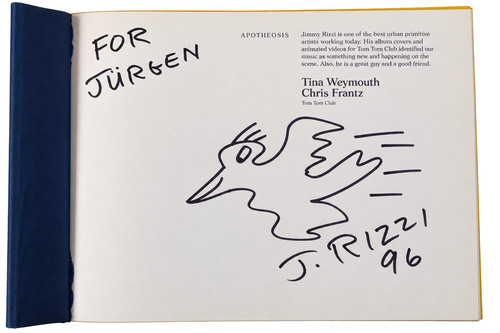 FOR
JÜRGEN
APOTHEOSIS
Jimmy Rizzi is one of the best urban primitive
artists working today. His album covers and
animated videos for Tom Tom Club identified our
music as something new and happening on the
scene. Also, he is a great guy and a good friend.
Tina Weymouth
Chris Frantz
Tom Tom Club
J. RIZZI
96